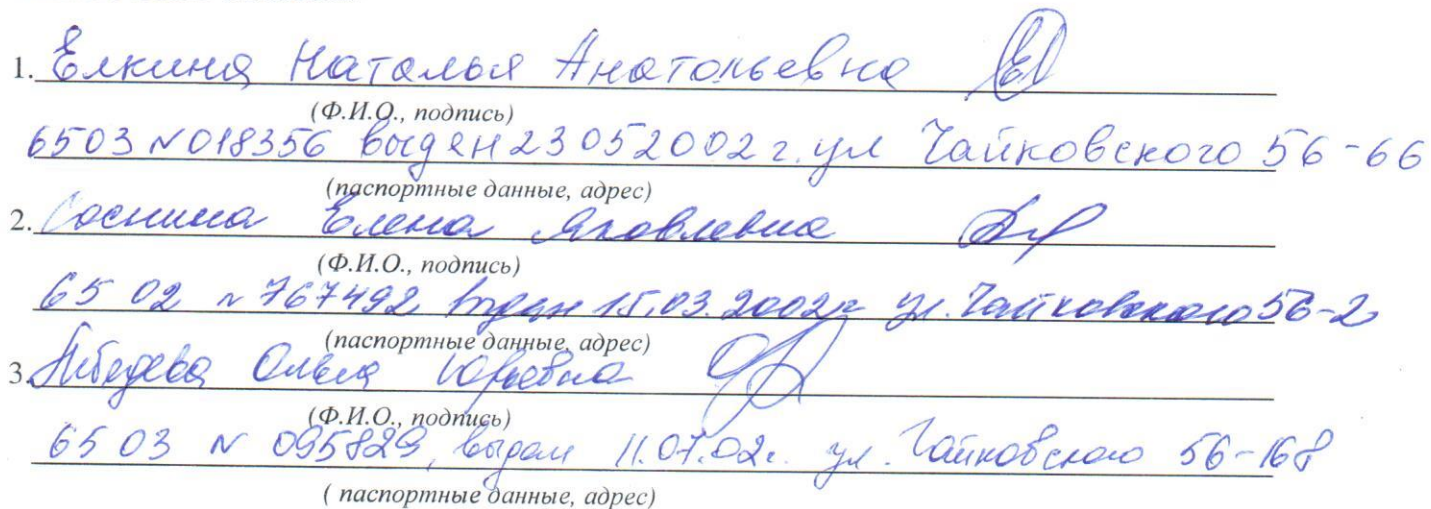 1. Елкина Наталья Анатольевна
(Ф.И.О., подпись)
6503 N018356 выдан 23052002 г. ул Чайковского 56-66
(паспортные данные, адрес)
2. Соснина Елена Яковлевна
(Ф.И.О., подпись)
65 02 N 767492 выдан 15.03.2002г ул. Чайковского 56-2
(паспортные данные, адрес)
3. Лебедева Ольга Юрьевна
(Ф.И.О., подпись)
65 03 N 095829, выдан 11.07.02г. ул. Чайковского 56-168
( паспортные данные, адрес)